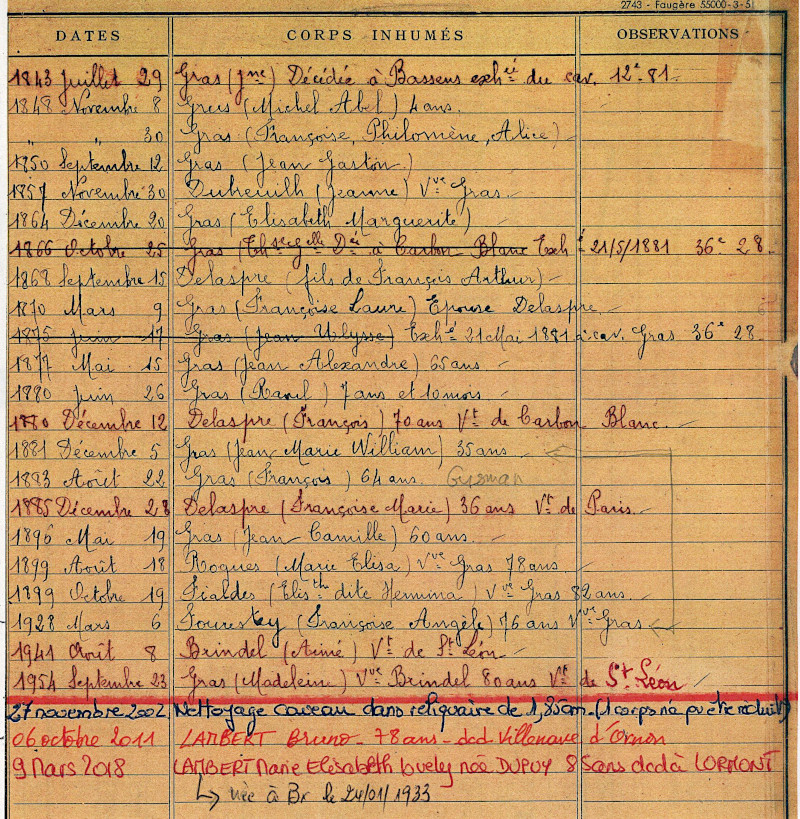 2743 - Faugère 55000-3-51
DATES CORPS INHUMÉS OBSERVATIONS
1843 Juillet 29 Gras (Jne) Décédée à Bassens exhée du cav. 12e 81
1848 Novembre 8 Gras (Michel Abel) 4 ans.
" " 30 Gras (Françoise, Philomène, Alice)
1850 Septembre 12 Gras (Jean Gaston)
1857 Novembre 30 Dubreuilh (Jeanne) Vve Gras
1864 Décembre 20 Gras (Elisabeth Marguerite)
1866 Octobre 25 Gras à Carbon Blanc Exhé 21/5/1881 36e 28
1868 Septembre 15 Delaspre (fils de François Arthur)
1870 Mars 9 Gras (Françoise Laure) Epouse Delaspre
1875 Juin 17 Gras (Jean Ulysse) Exhé 21 Mai 1881 à cav. Gras 36e 28
1877 Mai 15 Gras (Jean Alexandre) 65 ans
1880 Juin 26 Gras (Raoul) 7 ans et 10 mois
1880 Décembre 12 Delaspre (François) 70 ans Vt de Carbon Blanc
1881 Décembre 5 Gras (Jean Marie William) 35 ans
1883 Août 22 Gras (François) 64 ans. Gusman
1885 Décembre 28 Delaspre (Françoise Marie) 36 ans Vt de Paris
1896 Mai 19 Gras (Jean Camille) 60 ans.
1899 Août 18 Roques (Marie Elisa) Vve Gras 78 ans.
1899 Octobre 19 Fialdes (Elisth dite Hemma) Vve Gras 82 ans.
1928 Mars 6 Fourestey (Françoise Angèle) 76 ans Vve Gras
1941 Août 8 Brindel (Aimé) Vt de St Léon
1954 Septembre 23 Gras (Madeleine) Vve Brindel 80 ans Vt de St Léon
27 novembre 2002 Nettoyage caveau dans reliquaire de 1,85m (1 corps na pu être réduit)
06 octobre 2011 LAMBERT Bruno - 78 ans - dcd Villenave d'ornon
9 Mars 2018 LAMBERT Marie Elisabeth lovely née DUPUY 85ans dcd à LORMONT
↳ née à Bx le 24/01/1933